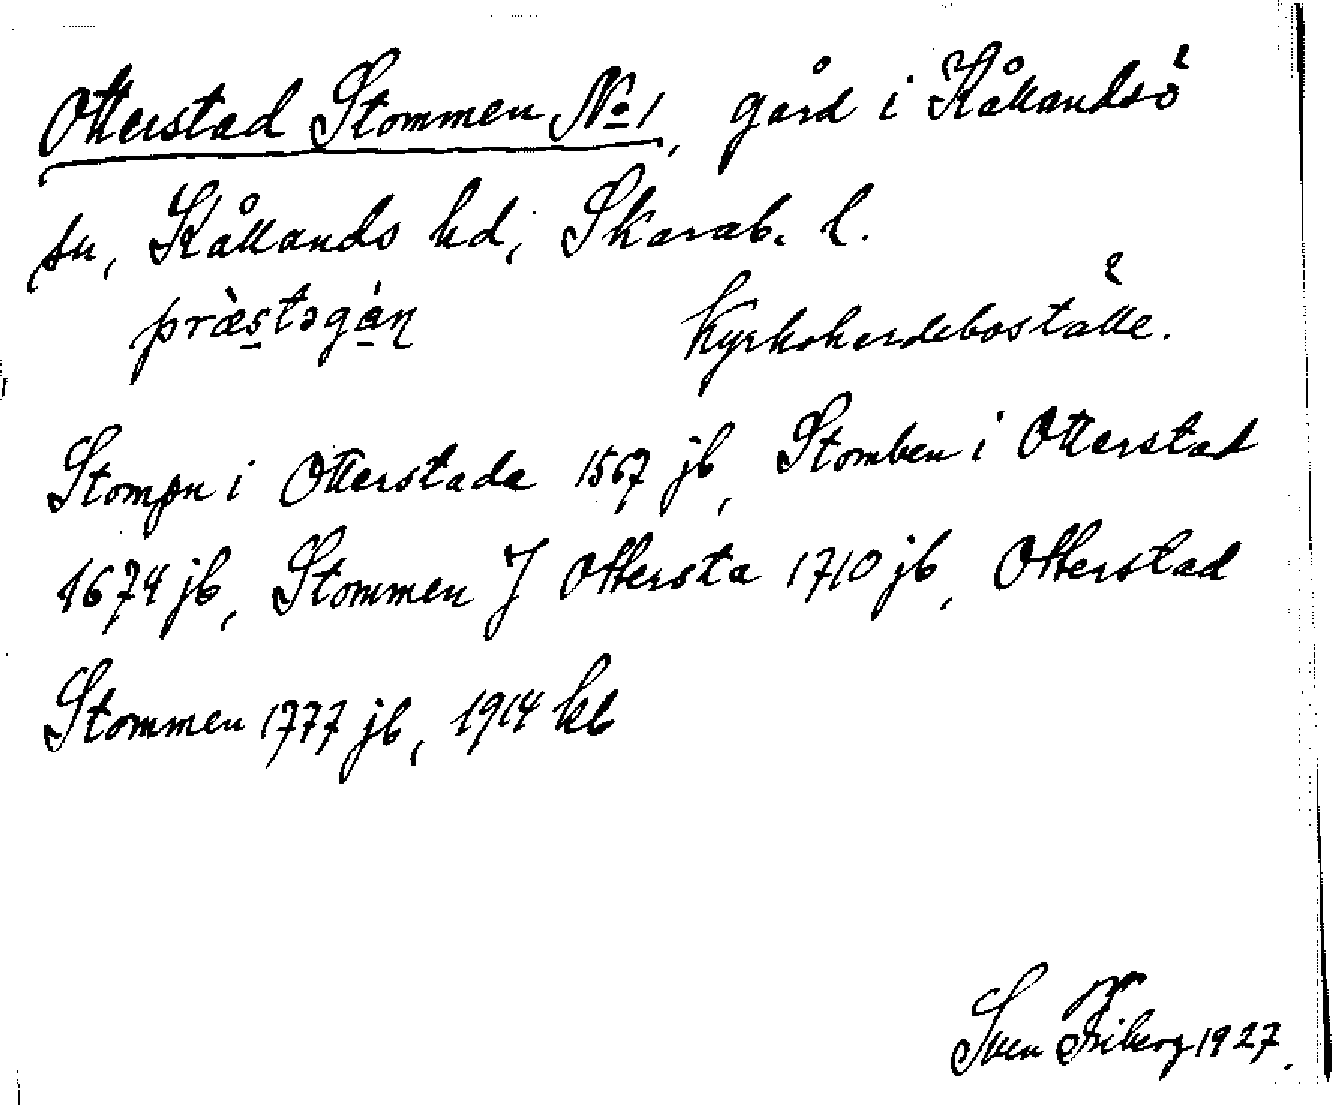 Otterstad Stommen No 1, gård i Kållandsö
sn, Kållands hd, Skarab. l.
præ̀stəgáɳ Kyrkoherdeboställe.
Stompn i Otterstada 1567 jb, Stomben i Otterstad
1674 jb, Stommen J Ottersta 1710 jb, Otterstad
Stommen 1777 jb, 1914 kb
Sven Friberg 1927.